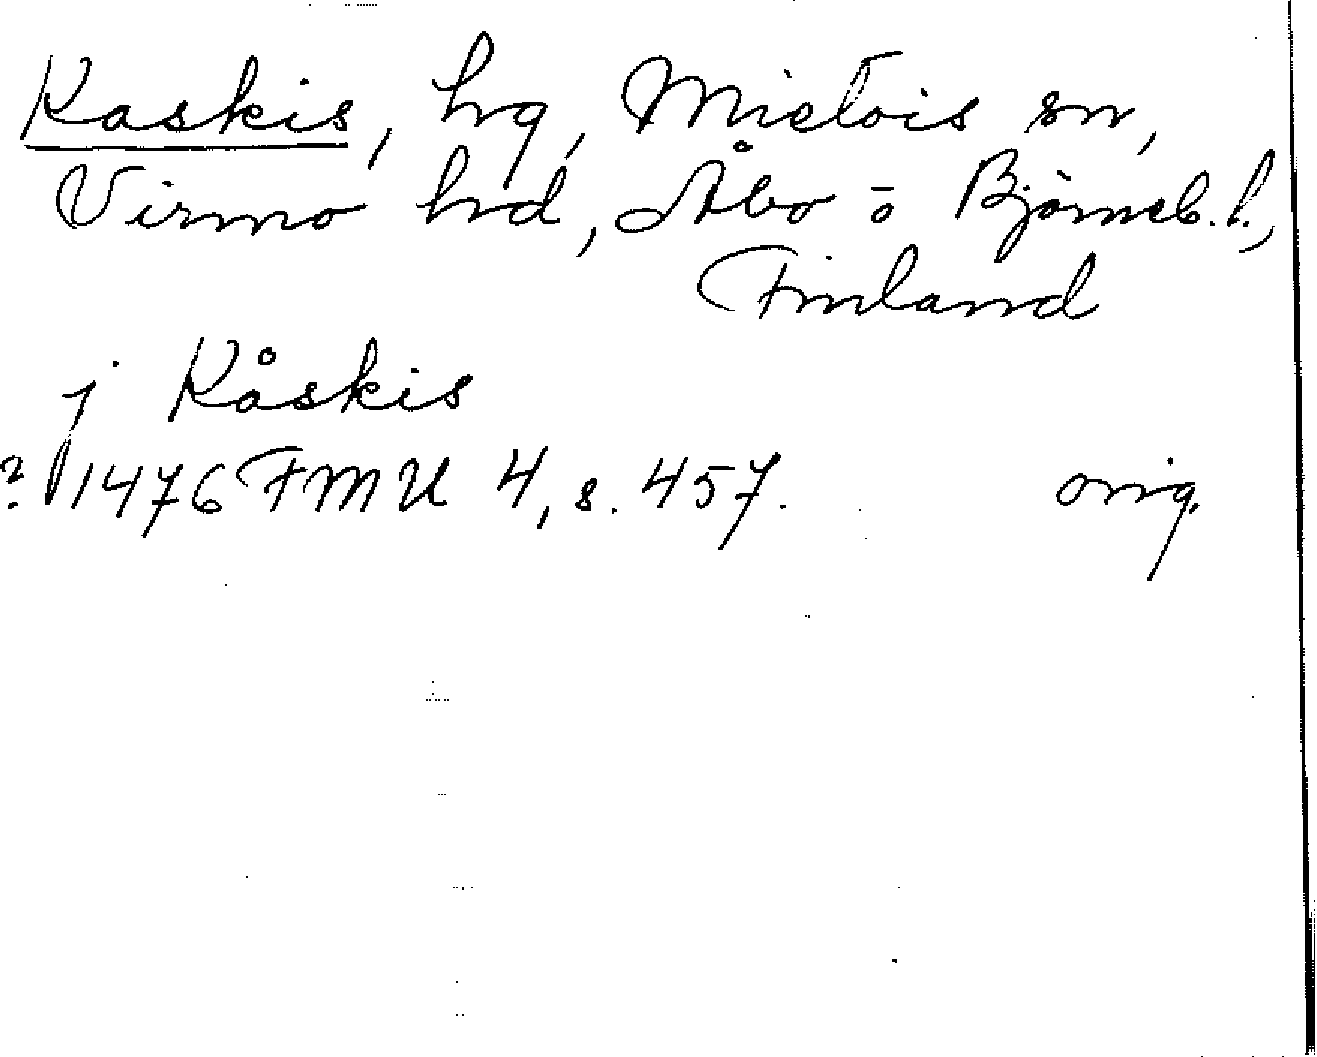 Kaskis, hg, Mietois sn,
Virmo hrd, Åbo o Björneb. l.,
Finland
j Kåskis
? 1476 FMU 4, s. 457. orig.